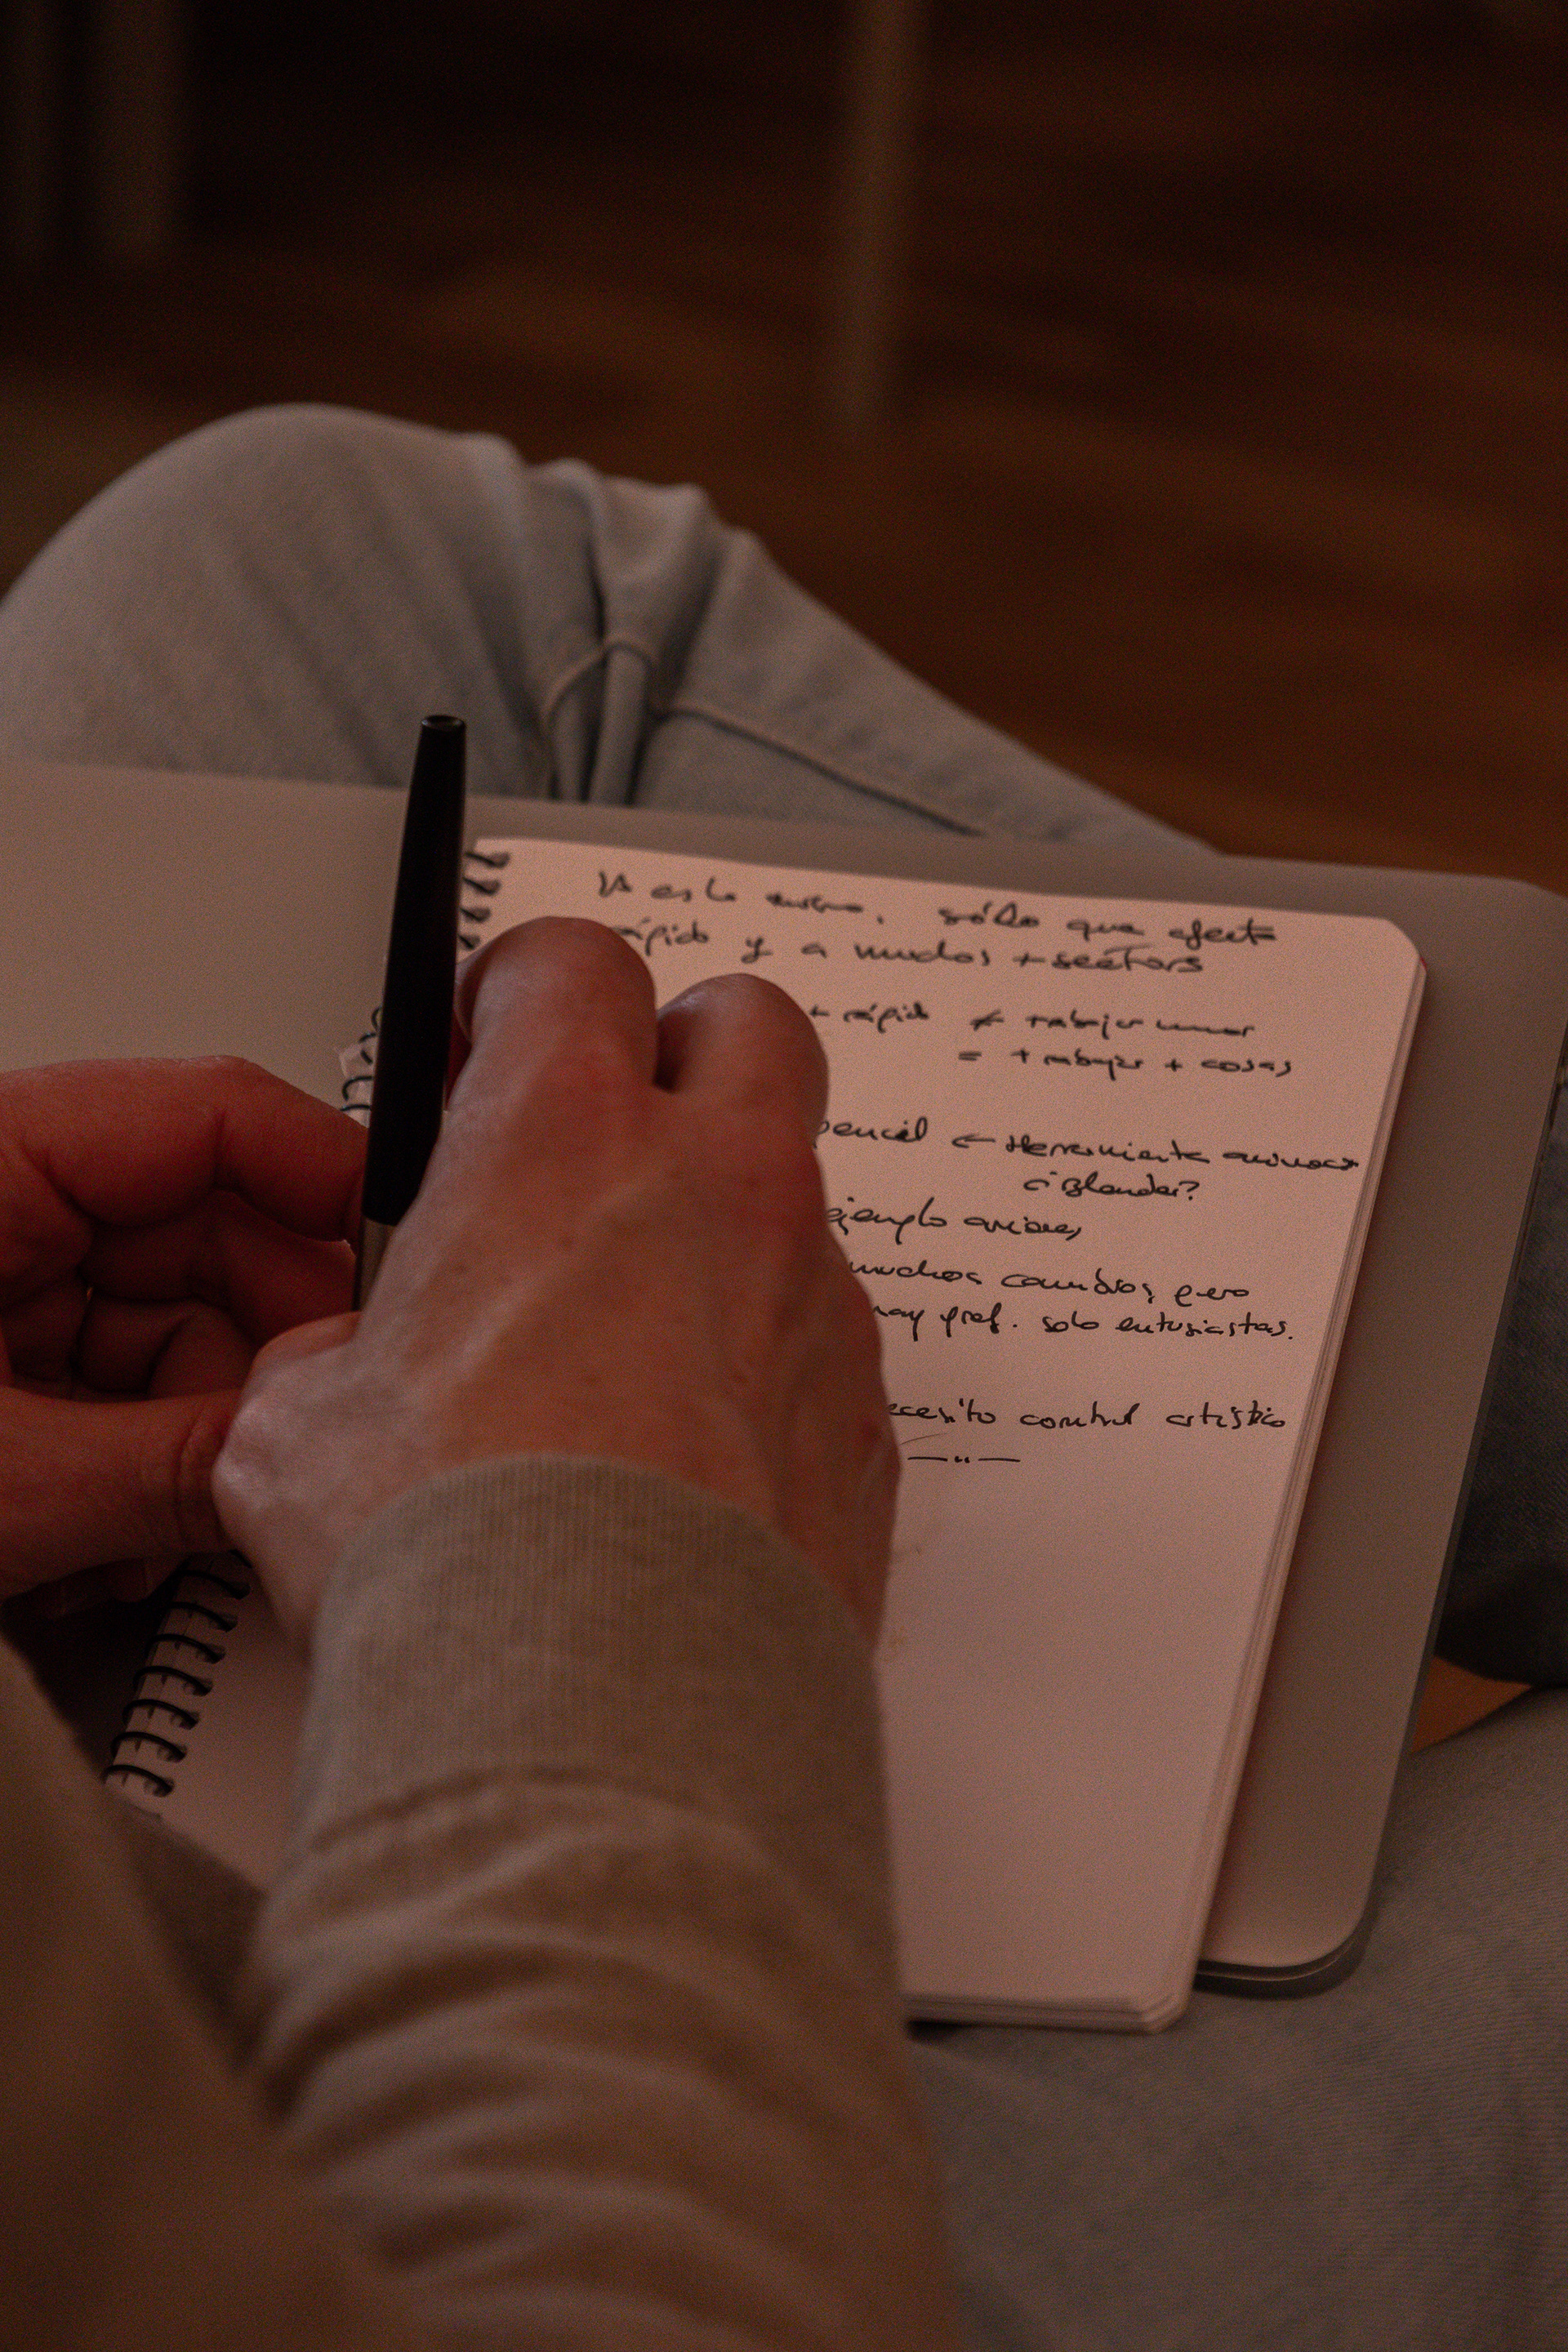 IA es lo mismo, sólo que afecta
rápido y a muchos + sectors
+ rápido ≠ trabajar menos
= + trabajar + cosas
pencil ← Herramienta
¿Blender?
ejemplo
muchos cambios pero
hay prof. solo entusiastas.
ecesito control artístico